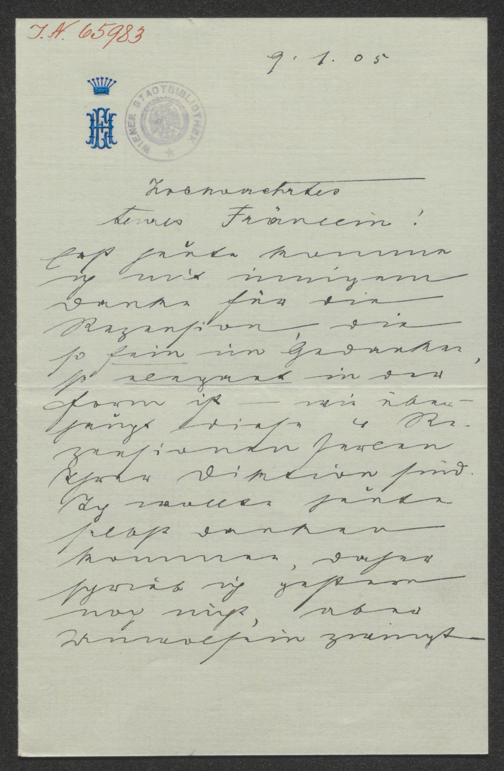 J.N. 65983
9. 1. 05
WIENER STADTBIBLIOTHEK
Hochverehrtes
teures Fräulein!
Erst heute komme
ich mit innigem
Danke für die
Rezension, die
so fein im Gedanken,
so elegant in der
Form ist – wie über-
haupt diese Re-
zensionen Perlen
Ihrer Diktion sind.
Ich wollte heute
selbst danken
kommen, daher
schrieb ich gestern
noch nicht, aber
Unwohlsein zwingt